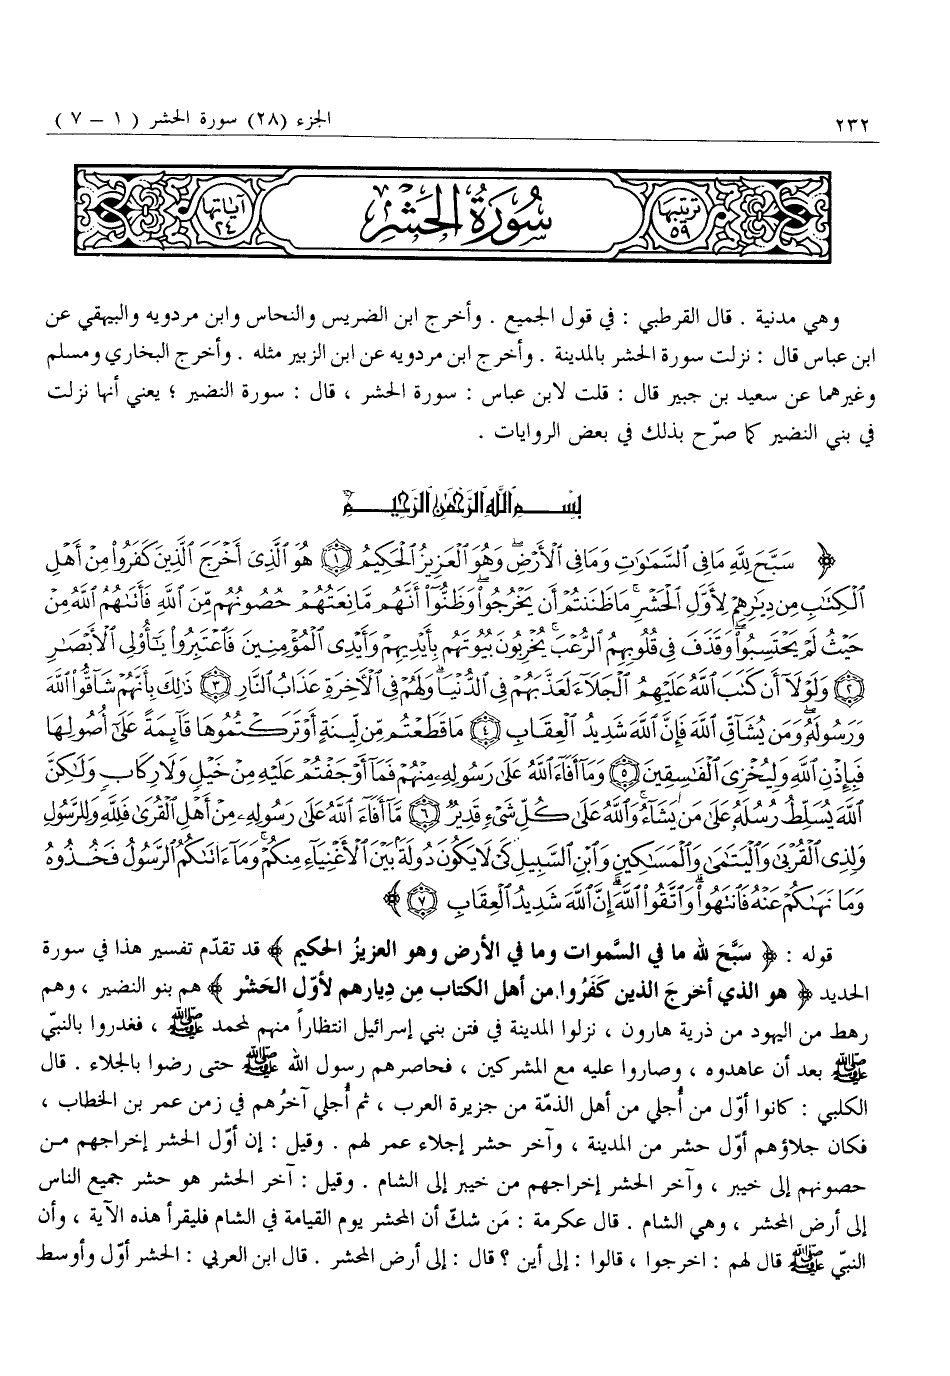 ٢٣٢
الجزء (٢٨) سورة الحشر ( ١ – ٧ )
ترتيبها ٥٩
سُورَةُ الحَشْرِ
آياتها ٢٤
وهي مدنية . قال القرطبي : في قول الجميع . وأخرج ابن الضريس والنحاس وابن مردويه والبيهقي عن
ابن عباس قال : نزلت سورة الحشر بالمدينة . وأخرج ابن مردويه عن ابن الزبير مثله . وأخرج البخاري ومسلم
وغيرهما عن سعيد بن جبير قال : قلت لابن عباس : سورة الحشر ، قال : سورة النضير ؛ يعني أنها نزلت
في بني النضير كما صرّح بذلك في بعض الروايات .
بِسْمِ اللَّهِ الرَّحْمَٰنِ الرَّحِيمِ
﴿ سَبَّحَ لِلَّهِ مَا فِي ٱلسَّمَٰوَٰتِ وَمَا فِي ٱلْأَرْضِۖ وَهُوَ ٱلْعَزِيزُ ٱلْحَكِيمُ ١ هُوَ ٱلَّذِيٓ أَخْرَجَ ٱلَّذِينَ كَفَرُوا۟ مِنْ أَهْلِ
ٱلْكِتَٰبِ مِن دِيَٰرِهِمْ لِأَوَّلِ ٱلْحَشْرِۚ مَا ظَنَنتُمْ أَن يَخْرُجُوا۟ۖ وَظَنُّوٓا۟ أَنَّهُم مَّانِعَتُهُمْ حُصُونُهُم مِّنَ ٱللَّهِ فَأَتَىٰهُمُ ٱللَّهُ مِنْ
حَيْثُ لَمْ يَحْتَسِبُوا۟ۖ وَقَذَفَ فِي قُلُوبِهِمُ ٱلرُّعْبَۚ يُخْرِبُونَ بُيُوتَهُم بِأَيْدِيهِمْ وَأَيْدِي ٱلْمُؤْمِنِينَ فَٱعْتَبِرُوا۟ يَٰٓأُو۟لِي ٱلْأَبْصَٰرِ
٢ وَلَوْلَآ أَن كَتَبَ ٱللَّهُ عَلَيْهِمُ ٱلْجَلَآءَ لَعَذَّبَهُمْ فِي ٱلدُّنْيَاۖ وَلَهُمْ فِي ٱلْءَاخِرَةِ عَذَابُ ٱلنَّارِ ٣ ذَٰلِكَ بِأَنَّهُمْ شَآقُّوا۟ ٱللَّهَ
وَرَسُولَهُۥۖ وَمَن يُشَآقِّ ٱللَّهَ فَإِنَّ ٱللَّهَ شَدِيدُ ٱلْعِقَابِ ٤ مَا قَطَعْتُم مِّن لِّينَةٍ أَوْ تَرَكْتُمُوهَا قَآئِمَةً عَلَىٰٓ أُصُولِهَا
فَبِإِذْنِ ٱللَّهِ وَلِيُخْزِيَ ٱلْفَٰسِقِينَ ٥ وَمَآ أَفَآءَ ٱللَّهُ عَلَىٰ رَسُولِهِۦ مِنْهُمْ فَمَآ أَوْجَفْتُمْ عَلَيْهِ مِنْ خَيْلٍ وَلَا رِكَابٍ وَلَٰكِنَّ
ٱللَّهَ يُسَلِّطُ رُسُلَهُۥ عَلَىٰ مَن يَشَآءُۚ وَٱللَّهُ عَلَىٰ كُلِّ شَيْءٍ قَدِيرٌ ٦ مَّآ أَفَآءَ ٱللَّهُ عَلَىٰ رَسُولِهِۦ مِنْ أَهْلِ ٱلْقُرَىٰ فَلِلَّهِ وَلِلرَّسُولِ
وَلِذِي ٱلْقُرْبَىٰ وَٱلْيَتَٰمَىٰ وَٱلْمَسَٰكِينِ وَٱبْنِ ٱلسَّبِيلِ كَيْ لَا يَكُونَ دُولَةًۢ بَيْنَ ٱلْأَغْنِيَآءِ مِنكُمْۚ وَمَآ ءَاتَىٰكُمُ ٱلرَّسُولُ فَخُذُوهُ
وَمَا نَهَىٰكُمْ عَنْهُ فَٱنتَهُوا۟ۚ وَٱتَّقُوا۟ ٱللَّهَۖ إِنَّ ٱللَّهَ شَدِيدُ ٱلْعِقَابِ ٧ ﴾
قوله : ﴿ سَبَّحَ لله ما في السَّموات وما في الأرض وهو العزيزُ الحكيم ﴾ قد تقدّم تفسير هذا في سورة
الحديد ﴿ هو الذي أخرجَ الذين كَفَرُوا من أهل الكتاب مِن دِيارهم لأوّل الحَشْر ﴾ هم بنو النضير ، وهم
رهط من اليهود من ذرية هارون ، نزلوا المدينة في فتن بني إسرائيل انتظاراً منهم لمحمد ﷺ ، فغدروا بالنبيّ
ﷺ بعد أن عاهدوه ، وصاروا عليه مع المشركين ، فحاصرهم رسول الله ﷺ حتى رضوا بالجلاء . قال
الكلبي : كانوا أوّل من أُجلي من أهل الذمّة من جزيرة العرب ، ثم أُجلي آخرُهم في زمن عمر بن الخطاب ،
فكان جلاؤهم أوّل حشر من المدينة ، وآخر حشر إجلاء عمر لهم . وقيل : إن أوّل الحشر إخراجهم من
حصونهم إلى خيبر ، وآخر الحشر إخراجهم من خيبر إلى الشام . وقيل : آخر الحشر هو حشر جميع الناس
إلى أرض المحشر ، وهي الشام . قال عكرمة : مَن شكّ أن المحشر يوم القيامة في الشام فليقرأ هذه الآية ، وأن
النبيّ ﷺ قال لهم : اخرجوا ، قالوا : إلى أين ؟ قال : إلى أرض المحشر . قال ابن العربي : الحشر أوّل وأوسط